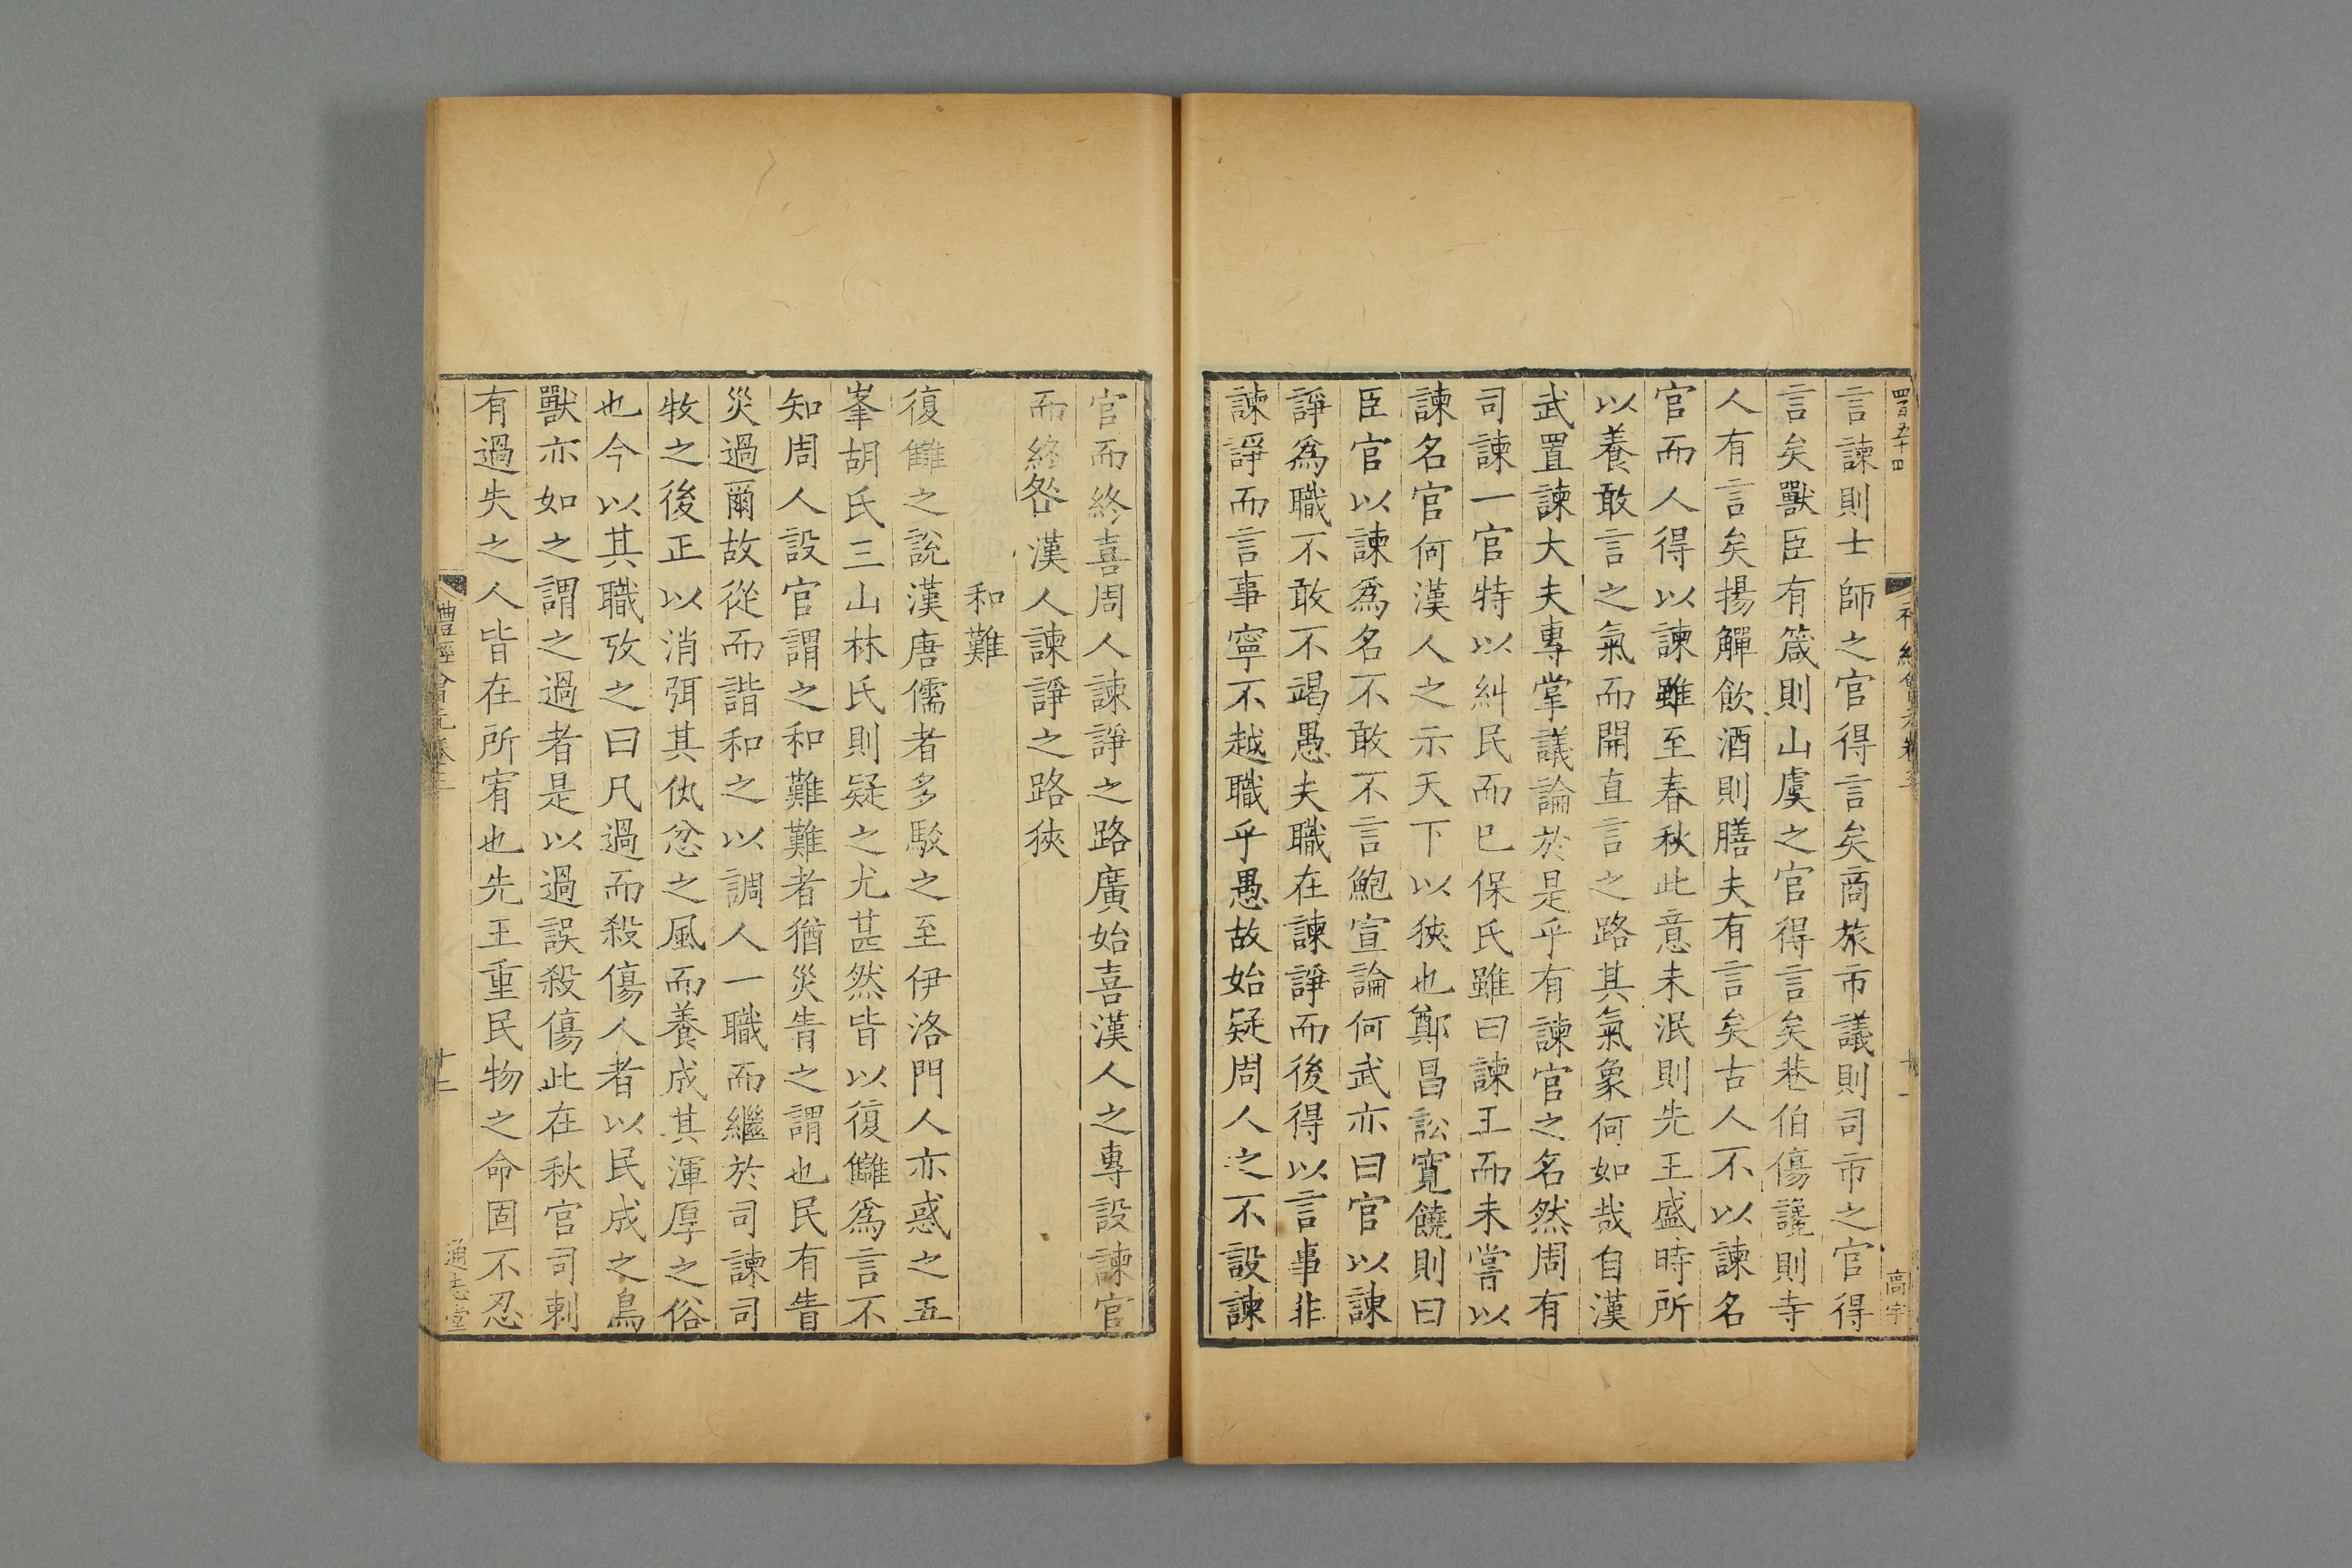 四百五十四
言諫則士師之官得言矣商旅市議則司市之官得
言矣獸臣有箴則山虞之官得言矣巷伯傷讒則寺
人有言矣揚觶飲酒則膳夫有言矣古人不以諫名
官而人得以諫雖至春秋此意未泯則先王盛時所
以養敢言之氣而開直言之路其氣象何如哉自漢
武置諫大夫專掌議論於是乎有諫官之名然周有
司諫一官特以糾民而已保氏雖曰諫王而未嘗以
諫名官何漢人之示天下以狹也鄭昌訟寬饒則曰
臣官以諫爲名不敢不言鮑宣論何武亦曰官以諫
諍爲職不敢不竭愚夫職在諫諍而後得以言事非
諫諍而言事寧不越職乎愚故始疑周人之不設諫
官而終喜周人諫諍之路廣始喜漢人之專設諫官
而終咎漢人諫諍之路狹
和難
復讎之說漢唐儒者多駁之至伊洛門人亦惑之五
峯胡氏三山林氏則疑之尤甚然皆以復讎爲言不
知周人設官謂之和難難者猶災眚之謂也民有眚
災過爾故從而諧和之以調人一職而繼於司諫司
牧之後正以消弭其仇忿之風而養成其渾厚之俗
也今以其職攷之曰凡過而殺傷人者以民成之鳥
獸亦如之謂之過者是以過誤殺傷此在秋官司刺
有過失之人皆在所宥也先王重民物之命固不忍
禮經會元卷三
十二
通志堂